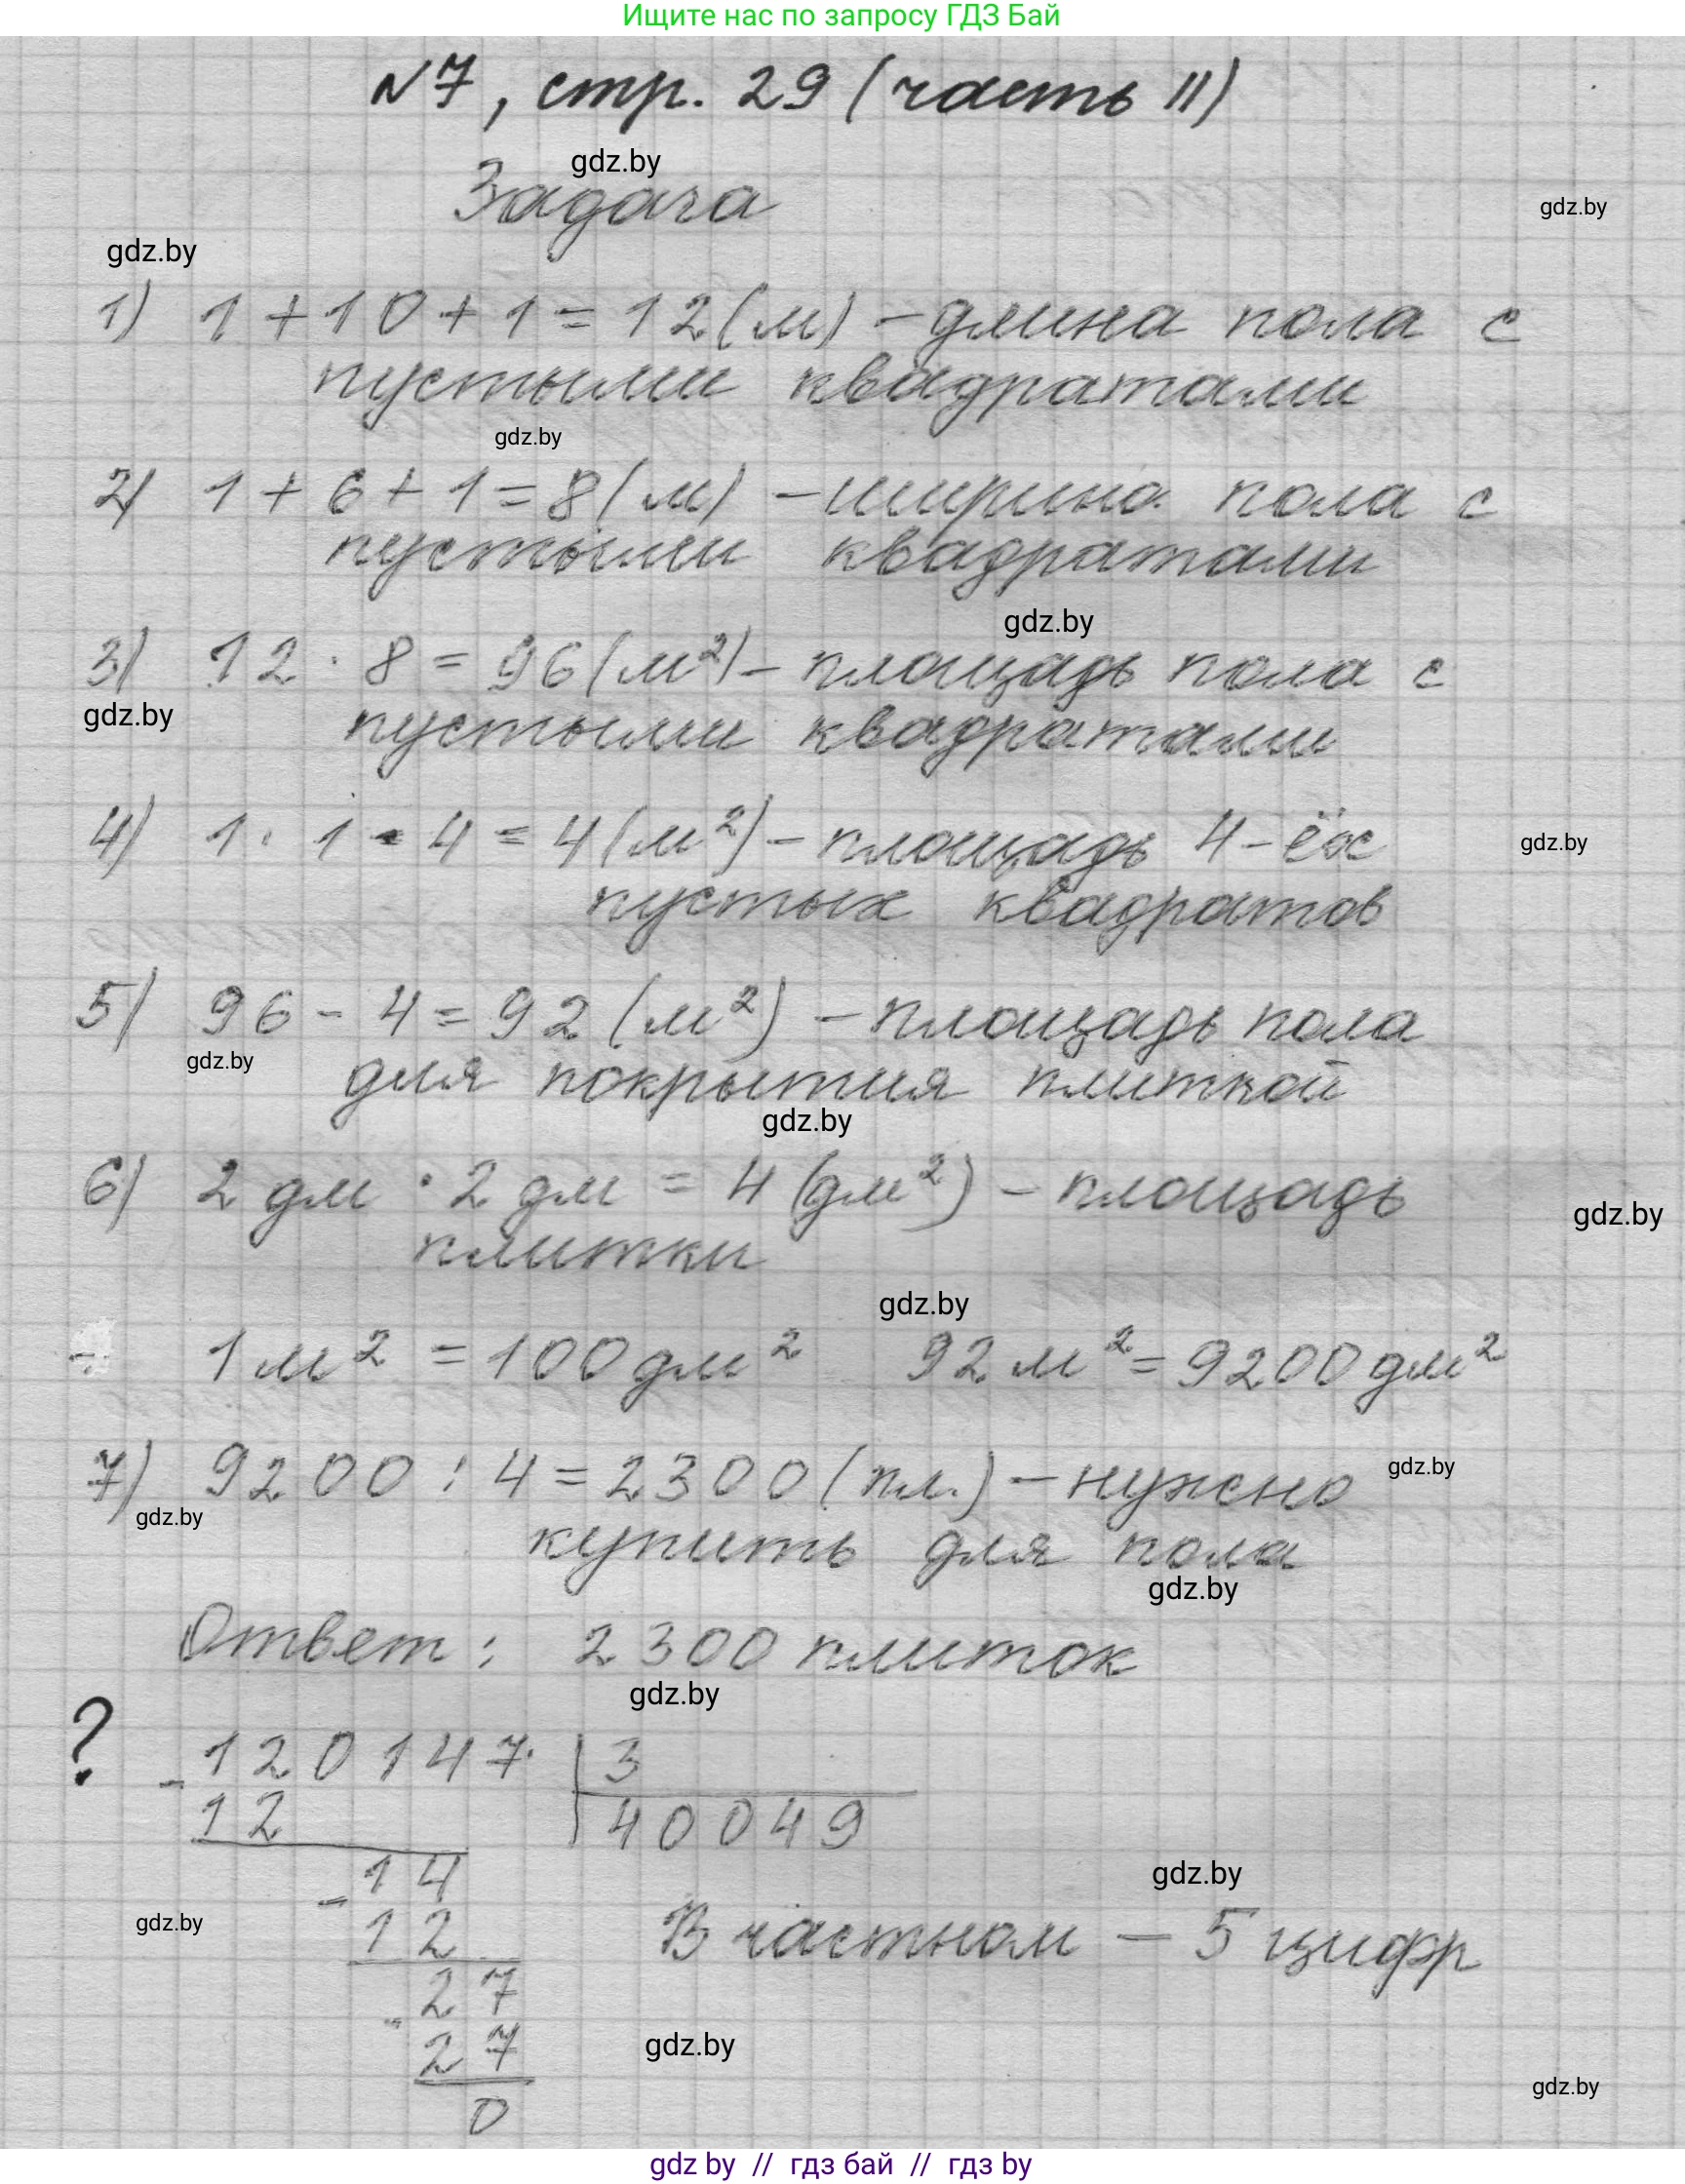 Ищите нас по запросу ГДЗ Бай
№7, стр. 29 (часть II)
gdz.by
Задача
gdz.by
gdz.by
1) 1 + 10 + 1 = 12 (м) - длина пола с
пустыми квадратами
gdz.by
2) 1 + 6 + 1 = 8 (м) - ширина пола с
пустыми квадратами
gdz.by
3) 12 · 8 = 96 (м²) - площадь пола с
gdz.by
пустыми квадратами
4) 1 · 1 · 4 = 4 (м²) - площадь 4-ёх
gdz.by
пустых квадратов
5) 96 - 4 = 92 (м²) - площадь пола
gdz.by
для покрытия плиткой
gdz.by
6) 2 дм · 2 дм = 4 (дм²) - площадь
gdz.by
плитки
gdz.by
1 м² = 100 дм² 92 м² = 9200 дм²
7) 9200 : 4 = 2300 (пл.) - нужно
gdz.by
gdz.by
купить для пола
gdz.by
Ответ: 2300 плиток
gdz.by
? - 120147 | 3
12 40049
- 14
gdz.by
12
gdz.by
В частном - 5 цифр
- 27
27
gdz.by
gdz.by
0
gdz by // гдз бай // гдз by